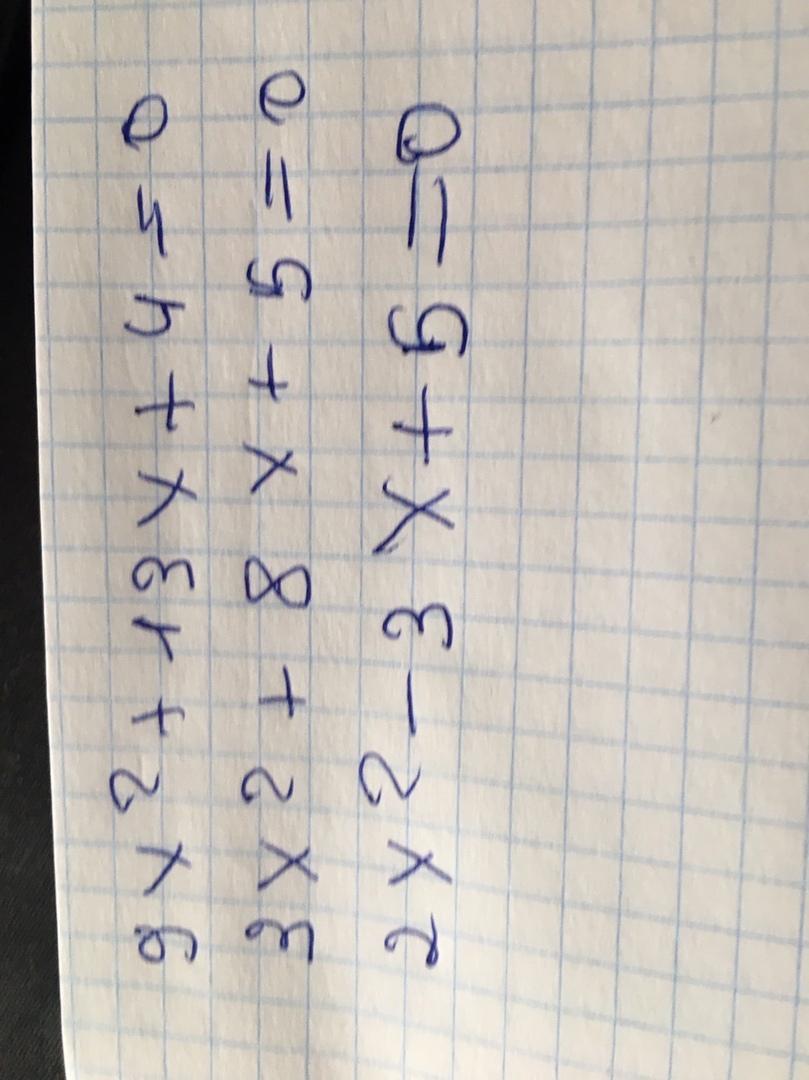 9x² + 13x + 4 = 0
3x² + 8x + 5 = 0
2x² - 3x + 5 = 0